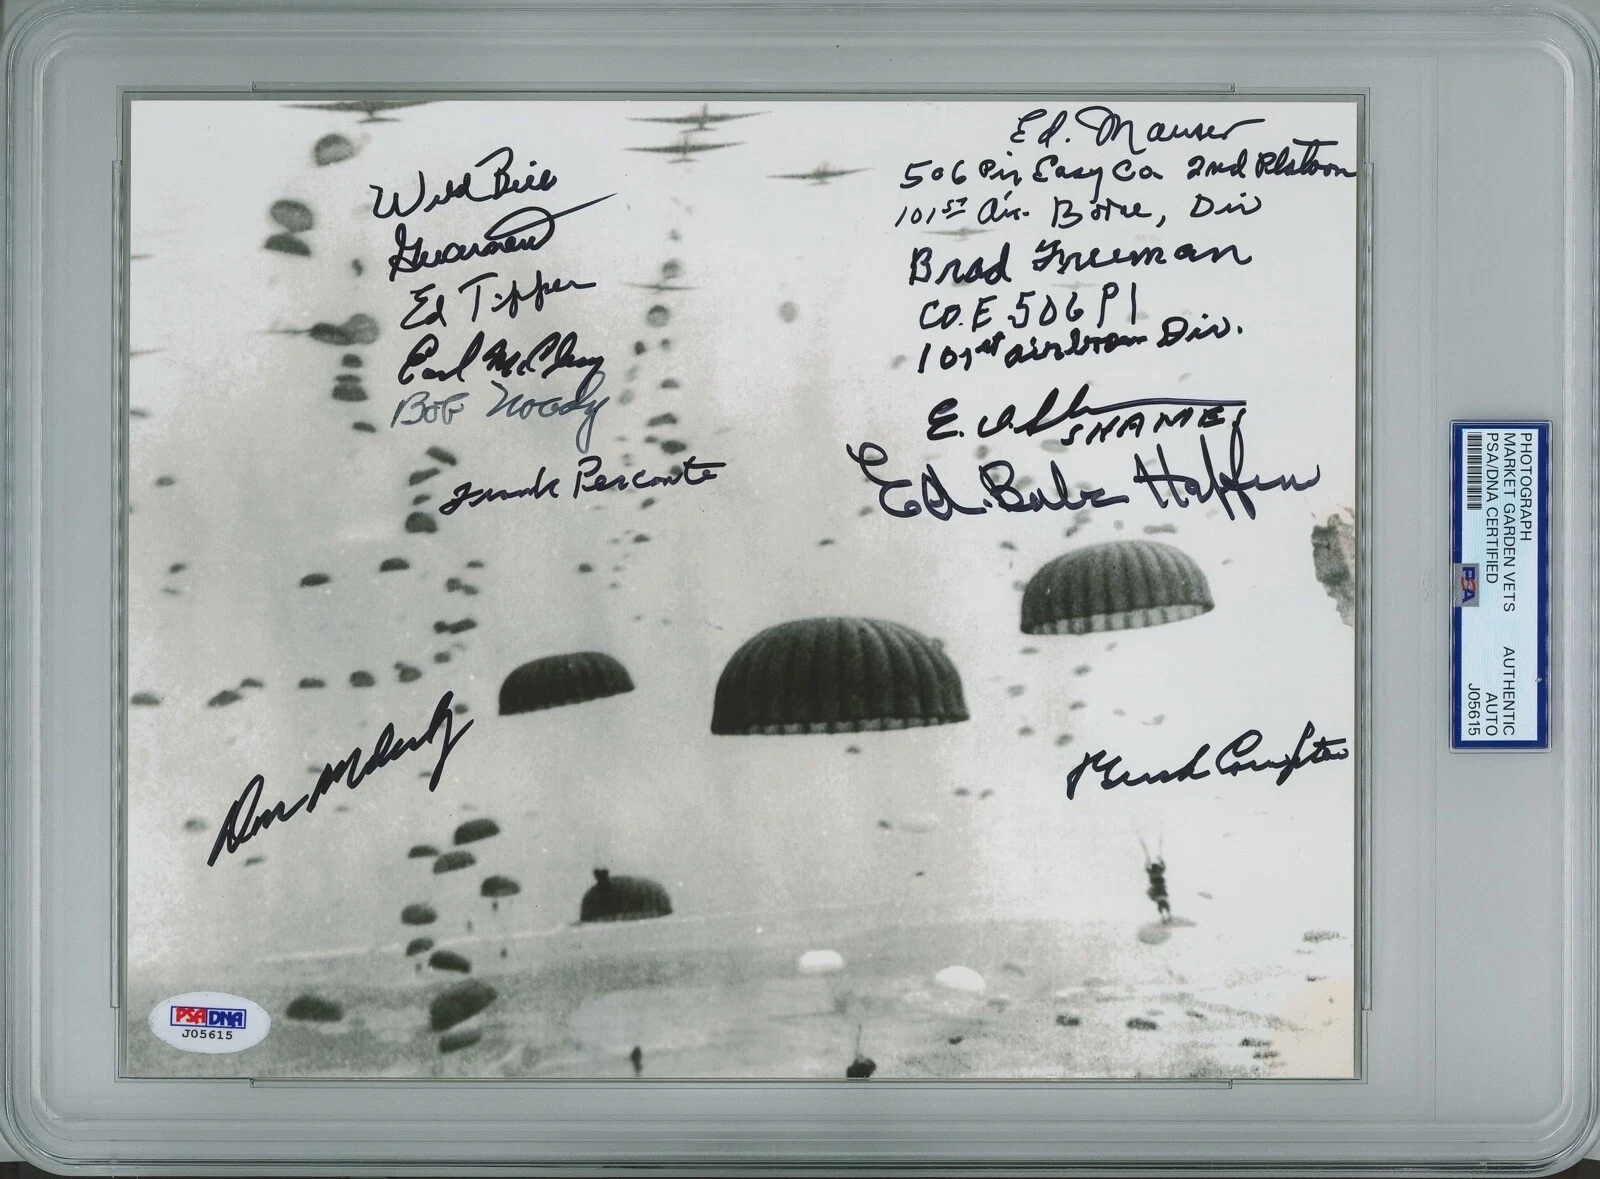 Wild Bill
Guarnere
Ed Tipper
Earl McClung
Bob Noody
Frank Perconte
Ed. Mauser
506 Pir Easy Co 2nd Platoon
101ST Air Borne, Div
Brad Freeman
CO.E 506 PI
101st airborne Div.
E. D. Shames
SHAMES
Ed. Babe Heffron
Don Malarkey
Buck Compton
PSA DNA
J05615
PHOTOGRAPH
MARKET GARDEN VETS AUTHENTIC
PSA/DNA CERTIFIED AUTO
J05615
PSA